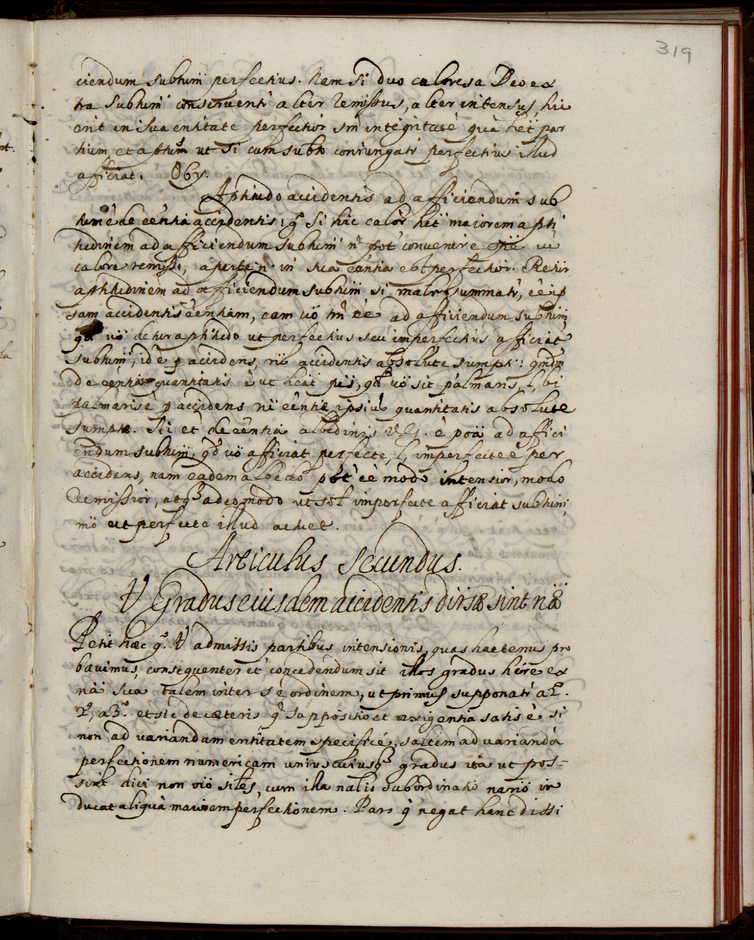 319
ciendum subtum perfectius. Nam si duo calores a Deo ex
tra subtum conserventr alter remissus, alter intensus, hic
erit in sua entitate perfectior sm integritatē quā het par
tium et aptum ut si cum subto coniungatr perfectius illud
afficiat. Obÿ.
Aptitudo accidentis ad afficiendum sub
tum ē de eentia accidentis; g si hic calor het maiorem apti
tudinem ad afficiendum subtum n pot convenire cū
calore remisso, aperte in sua eentia est perfectior. Respr
aptitudinem ad afficiendum subtum si mater sumatr, ēē ip
sam accidentis eentiam, eam vō ad afficiendum subtum
qd vō detur aptitudo ut perfectius seu imperfectius afficiat
subtum, id ē p accidens, absolute sumpti: quēad
de eentia quantitatis ē ut qd vō sit palmaris, l bi
palmaris ē p accidens eentiæ ipsius quantitatis absolute
sumptæ. Sic et de eentia albedinis v.g. ē ad affici
endum subtum, qd vō afficiat perfecte, l imperfecte ē per
accidens, nam eadem albedo pōt ēē modo intensior, modo
remissior, atq adeo modo ut sol imperfecte afficiat subtum,
mō ut perfecte illud
Articulus secundus.
V Gradus eiusdem accidentis diversæ sint nāæ
Petit hæc q. V admissis partibus intensionis, quas hactenus pro
bavimus, consequenter et concedendum sit illos gradus hēre ex
nā sua talem inter se ordinem, ut primus supponatr a 2º.
2º, a 3º. et sic de cæteris q suppositio et exigentia satis ē si
non ad variandam entitatem specificē, saltem ad variandā
perfectionem numericam uniuscuiusq gradus ita ut pos-
sint dici non oīo siles, cum illa nalis subordinatio in
ducat aliquā maiorem perfectionem. Pars q negat hanc dissi